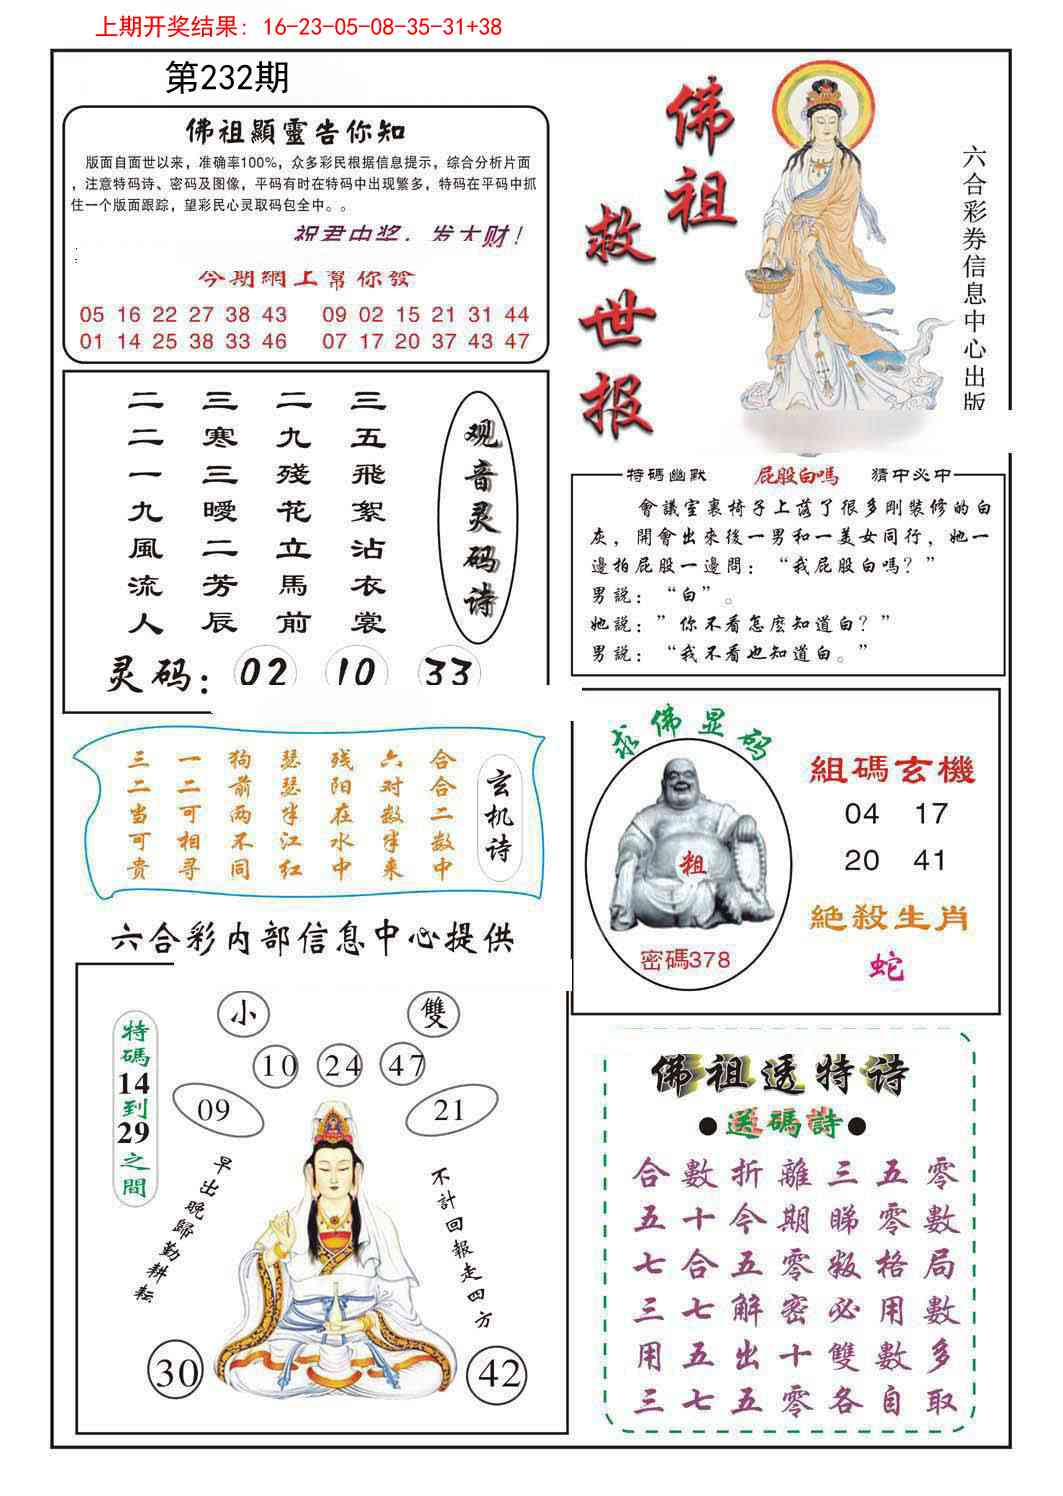 上期开奖结果: 16-23-05-08-35-31+38
第232期
佛祖顯靈告你知
版面自面世以来，准确率100%，众多彩民根据信息提示，综合分析片面
，注意特码诗、密码及图像，平码有时在特码中出现繁多，特码在平码中抓
住一个版面跟踪，望彩民心灵取码包全中。。
祝君中奖，发大财！
今期網上幫你發
05 16 22 27 38 43 09 02 15 21 31 44
01 14 25 38 33 46 07 17 20 37 43 47
佛祖
救世报
六合彩券信息中心出版
观音灵码诗
三五飛絮沾衣裳
二九殘花立馬前
三寒三暧二芳辰
二二一九風流人
灵码：02 10 33
特碼幽默 屁股白嗎 猜中必中
會議室裏椅子上落了很多剛裝修的白
灰，開會出來後一男和一美女同行，她一
邊拍屁股一邊問：“我屁股白嗎？”
男説：“白”。
她説：”你不看怎麽知道白？”
男説：“我不看也知道白。”
玄机诗
合合二数中
六对数半来
残阳在水中
瑟瑟半江红
狗前两不同
一二可相寻
三二当可贵
求佛显码
粗
密碼378
組碼玄機
04 17
20 41
絶殺生肖
蛇
六合彩内部信息中心提供
特碼14到29之間
小 雙
10 24 47
09 21
早出晚歸勤耕耘
不計回報走四方
30 42
佛祖透特诗
●送碼詩●
合數折離三五零
五十今期睇零數
七合五零叛格局
三七解密必用數
用五出十雙數多
三七五零各自取